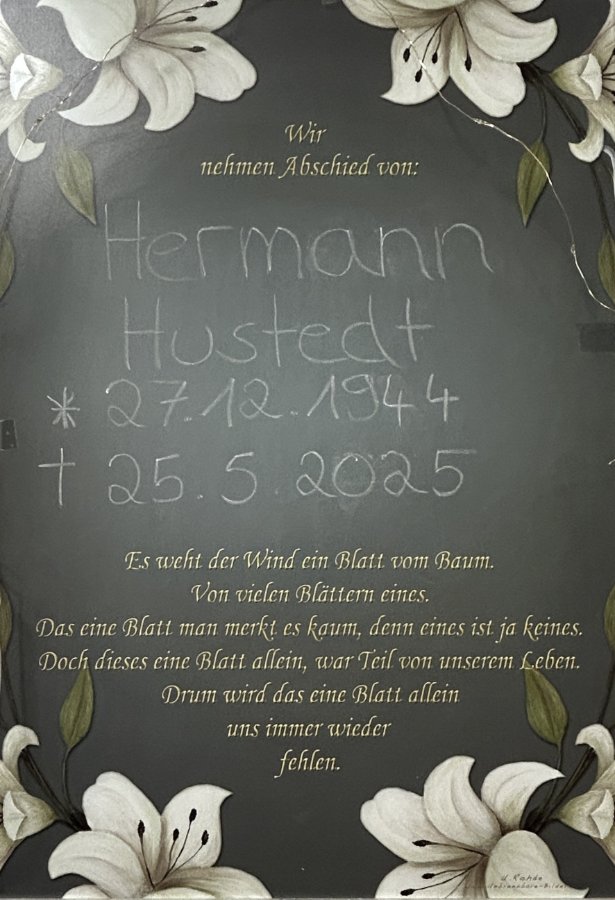 Wir
nehmen Abschied von:
Hermann
Hustedt
* 27.12.1944
† 25.5.2025
Es weht der Wind ein Blatt vom Baum.
Von vielen Blättern eines.
Das eine Blatt man merkt es kaum, denn eines ist ja keines.
Doch dieses eine Blatt allein, war Teil von unserem Leben.
Drum wird das eine Blatt allein
uns immer wieder
fehlen.